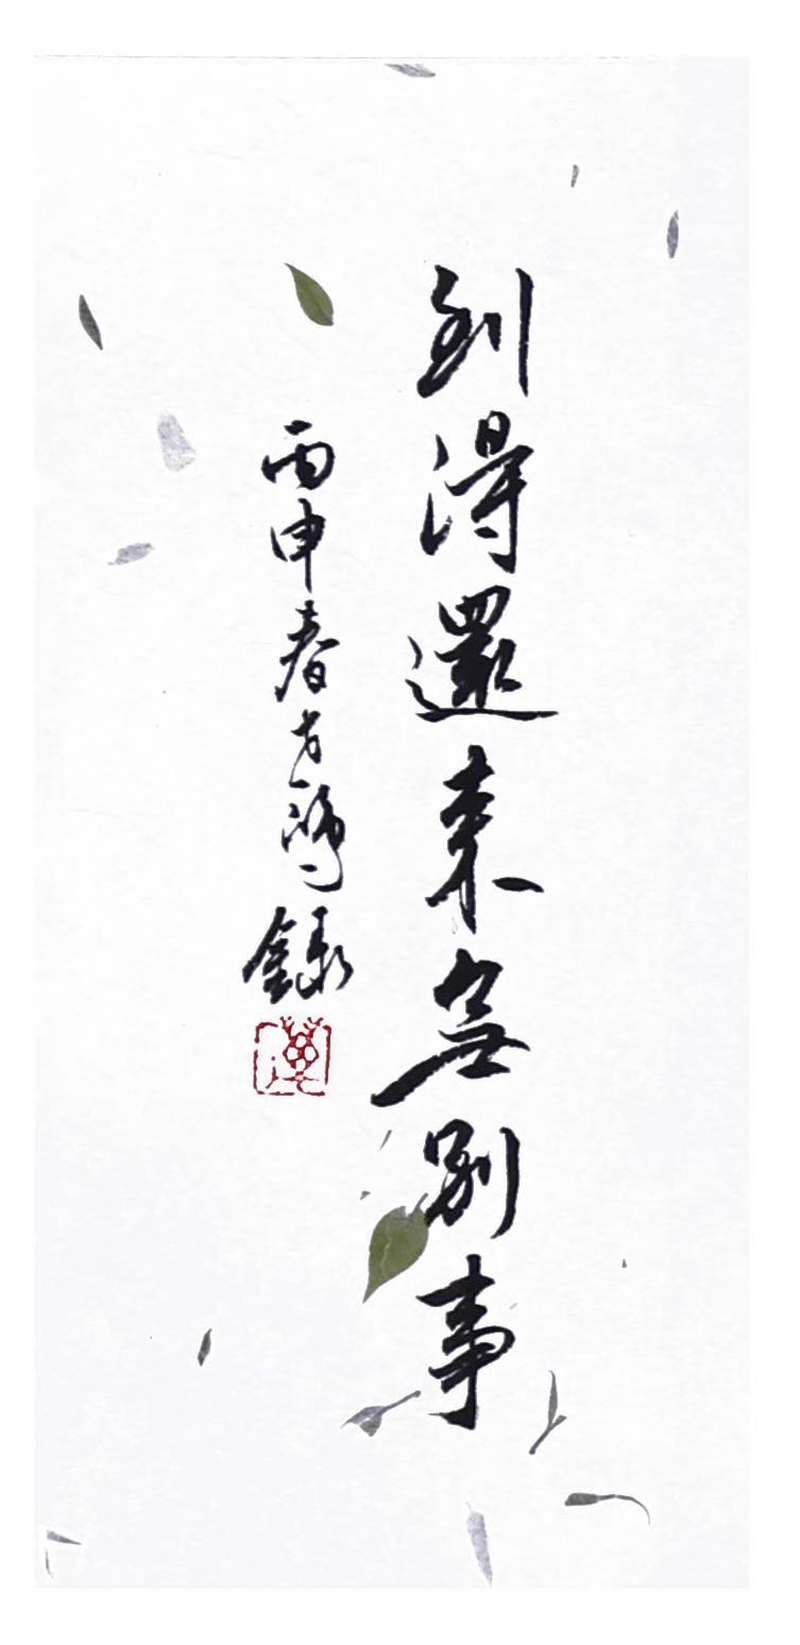 到得還來無別事
丙申春方鴻錄